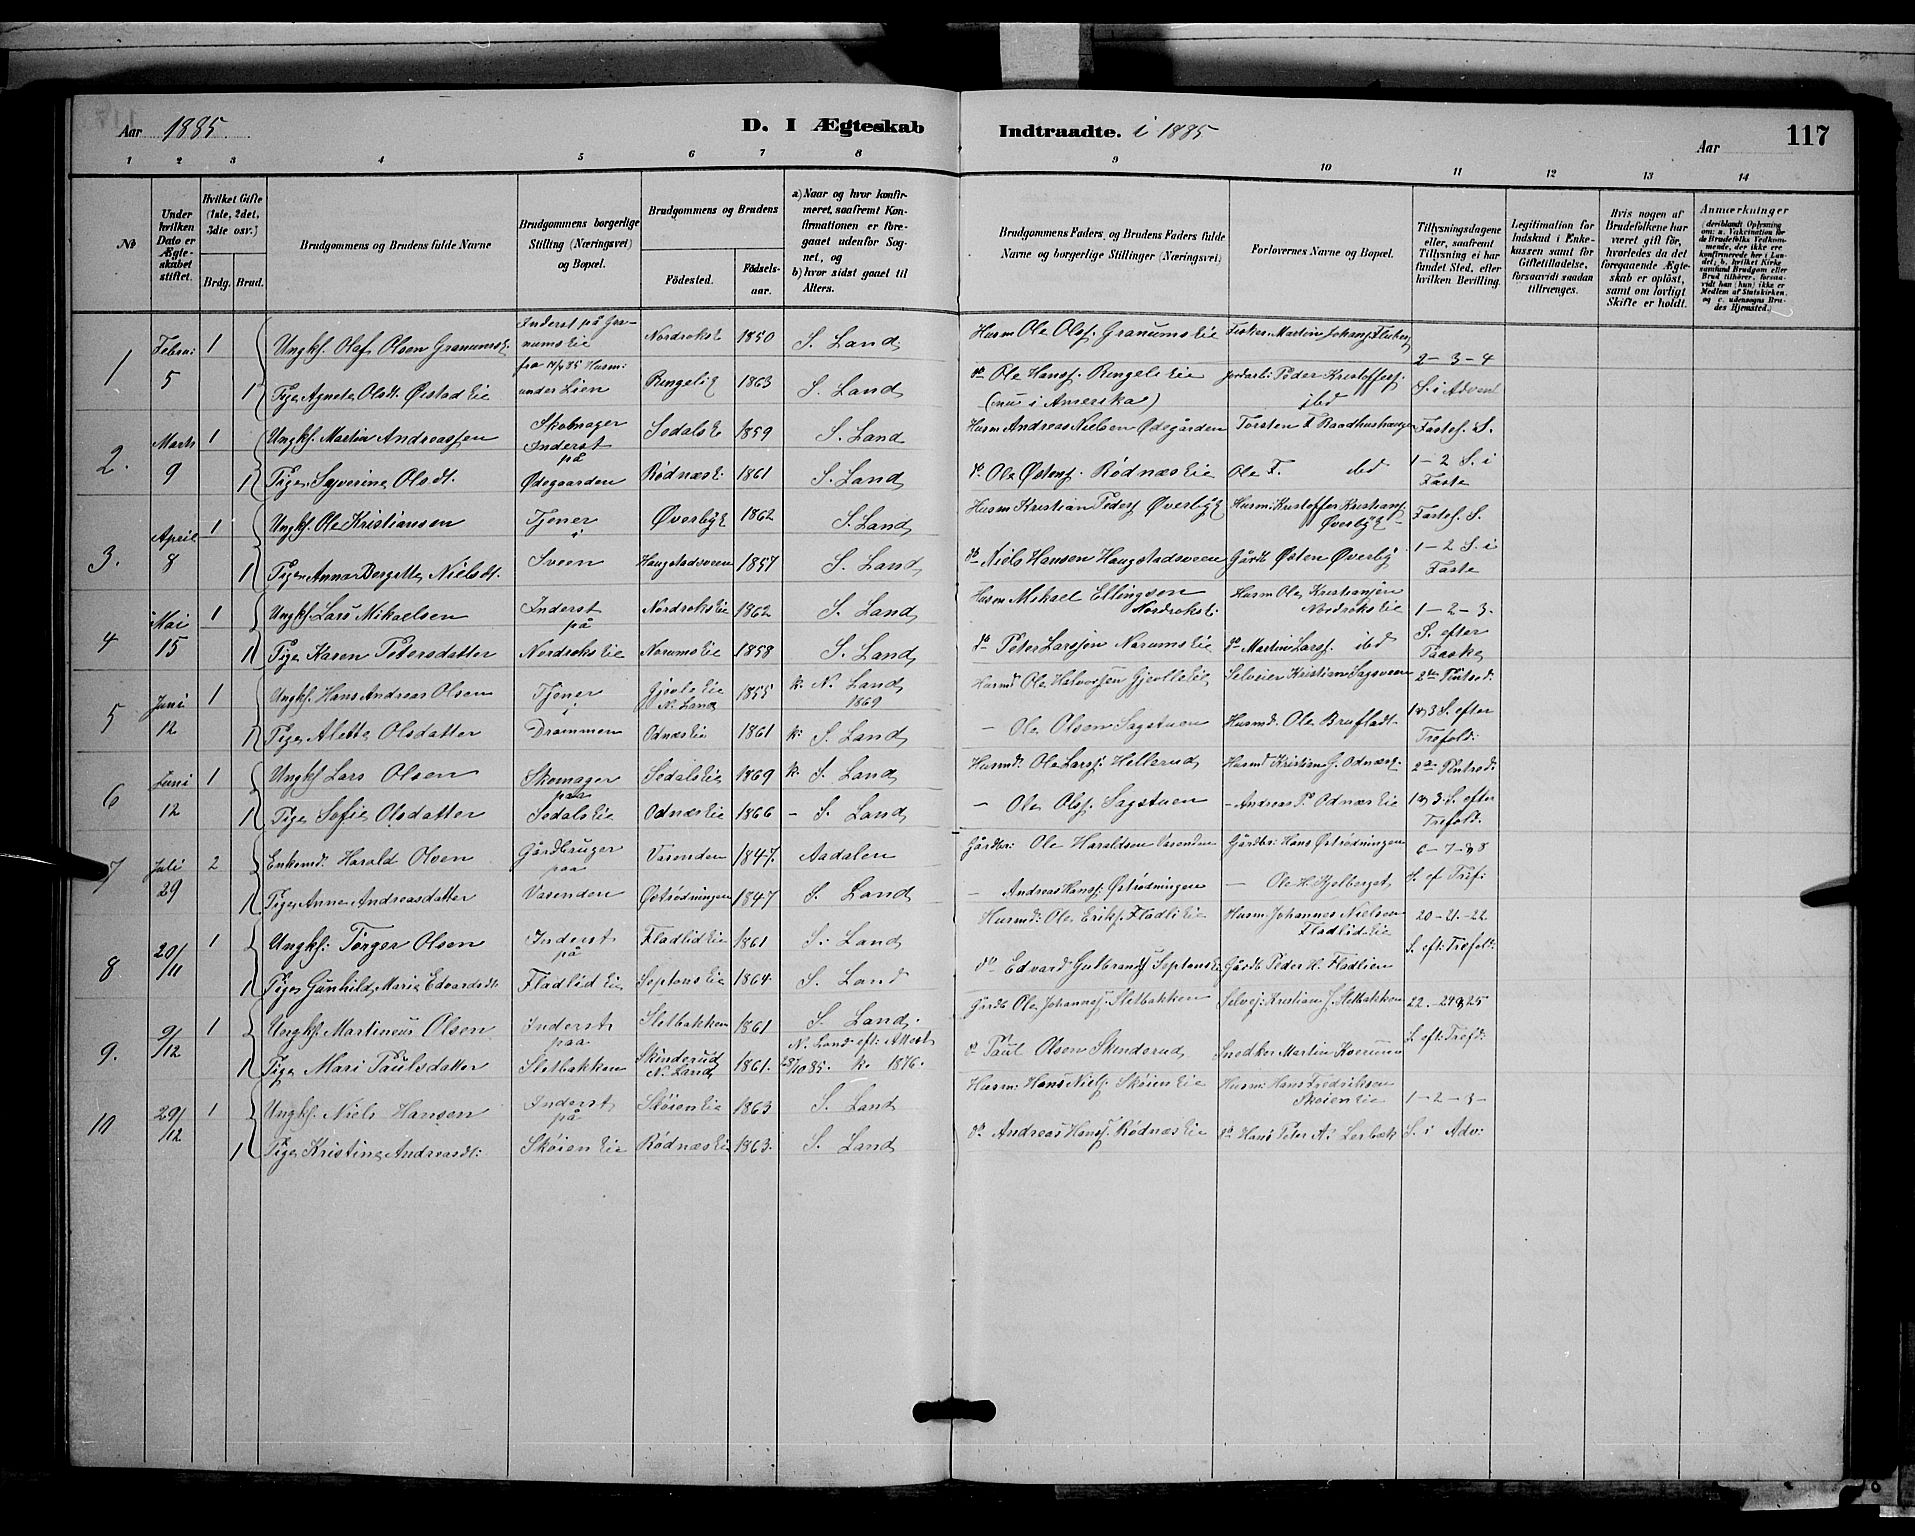 Aar 1885. D. I Ægteskab Indtraadte. i 1885 Aar 117
1 2 3 4 5 6 7 8 9 10 11 12 13 14
№ Under hvilken Dato er Ægteskabet stiftet. Hvilket Gifte (1ste, 2det, 3die osv.) Brdg. Brud. Brudgommens og Brudens fulde Navne Brudgommens borgerlige Stilling (Næringsvei) og Bopæl. Brudgommens og Brudens Fødested. Fødselsaar. a) Naar og hvor konfirmeret, saafremt Konfirmationen er foregaaet udenfor Sognet, og b) hvor sidst gaaet til Alters. Brudgommens Faders, og Brudens Faders fulde Navne og borgerlige Stillinger (Næringsvei) Forlovernes Navne og Bopæl. Tillysningsdagene eller, saafremt Tillysning ei har fundet Sted, efter hvilken Bevilling. Legitimation for Indskud i Enkekassen samt for Giftetilladelse, forsaavidt saadan tiltrænges. Hvis nogen af Brudefolkene har været gift før, hvorledes da det foregaaende Ægteskab er opløst, samt om lovligt Skifte er holdt. Anmærkninger (deriblandt Oplysning om: a. Vakcination for de Brudefolks Vedkommende, der ikke ere konfirmerede her i Landet; b. hvilket Kirkesamfund Brudgom eller Brud tilhører, forsaavidt han (hun) ikke er Medlem af Statskirken, og c. udensogns Brudes Hjemsted.)
1 Febru: 5 1 Ungkf. Olaf Olsen Granumsei Inderst på Granumseie Nordrokse 1850 S. Land Husm Ole Olsf. Granumseie Fisker Martin Johansf. Fluberg 2-3-4
1 Pige Agnete Olsdt. Østad Eie fra 14/4 85 Husm: under Lien Ringelie 1863 S. Land do Ole Hansf. Ringeli Eie (nu i Amerika) Jordarb: Peder Kristoffersf. ibd S. i Advent
2. Marts 9 1 Ungkf. Martin Andreassen Skomager Inderst på Sedalsei 1859 S. Land Husm Andreas Nielsen Ødegården Torsten T. Raadhushaugen Fastef. S.
1 Pige Syverine Olsdt. Ødegaarden Rødnæse 1861 S. Land do Ole Østensf. Rødnæs Eie Ole T. ibd 1-2 S. i Faste
3. April 8 1 Ungkf. Ole Kristiansen Tjener i Øverbye 1862 S. Land Husm Kristian Peders Øverbye Husm: Kristoffer Kristiansf. Øverbye Fastef. S.
1 Pige Anna Bergitte Nielsdt. Sveen Haugstadsveen 1857 S. Land do Niels Hansen Haugstadsveen Gårdb Østen Øverby 1-2 S. i Faste
4 Mai 15 1 Ungkf. Lars Mikaelsen Inderst på Nordrokseie 1862 S. Land Husm Mikael Ellingsen Nordrokse: Husm Ole Kristiansen Nordrokseie 1-2-3.
1 Pige Karen Petersdatter Nordrokseie Norumseie 1858 S. Land do Peter Larssen Narumseie do Martin Larsf. ibd S. efter Paaske
5 Juni 12 1 Ungkf. Hans Andreas Olsen Tjener i Gjevleeie N. Land 1855 k. N. Land 1869 Husmd Ole Halvorsen Gjevleeie Selveier Kristian Sagsveen 2den Pintsed:
1 Pige Alette Olsdatter Drammen Odnæseie 1861 k: S. Land - Ole Olsen Sagstuen Husmd. Ole Brufladt. 1&3 S. efter Trefold:
6 Juni 12 1 Ungkf. Lars Olsen Skomager paa Sedalseie 1869 k. S. Land Husmd. Ole Larsf. Hellerud Husmd Kristian G. Odnæse. 2den Pintsed:
1 Pige Sofie Olsdatter Sedalseie Odnæseie 1866 - S. Land - Ole Olsf. Sagstuen - Andreas P. Odnæs Eie 1&3. S. efter Trefold.
7 Juli 29 2 Enkemd. Harald Olsen Gårdbruger paa Varenden 1847. Aadalen Gårdbr: Ole Haraldsen Varenden Gårdbr: Hans Østrødningen 6-7-&8
1 Pige Anne Andreasdatter Varenden Østrødningen 1847 S. Land - Andreas Hansf. Østrødningen - Ole H. Hjelberget S. ef Tref:
8 20/11 1 Ungkf: Torger Olsen Inderst på Fladlideie 1861 S. Land Husmd: Ole Eriksf. Fladli Eie Husm. Johannes Nielsen Fladlideie 20-21-22
1 Pige Gunhild Marie Edvardsdt Fladlid Eie Septonseie 1864. S. Land do Edvard Gulbrandsf Septonseie Gårdb Peder H. Fladlien S. eft: Trefold:
9. 9/12 1 Ungkf. Martinius Olsen Inderst paa Sletbakken 1861 S. Land. Gårdb Ole Johannesf. Sletbakken Selvej: Kristian J. Sletbakken 22.-24&25
1 Pige Mari Paulsdatter Sletbakken Skinderud N. Land 1861. N. Land eft: Attest 28/10 85. k. 1876. do Paul Olsen Skinderud Snedker Martin Kverum S. eft: Trefd:
10 29/12 1 Ungkf. Niels Hansen Inderst på Skøieneie 1863 S. Land Husm: Hans Nielsf. Skøien Eie Husm: Hans Fredriksen Skøien Eie 1-2-3-
1 Pige Kristine Andreasdt: Skøien Eie Rødnæseie 1863. S. Land do Andreas Hansf. Rødnæs Eie do Hans Peter A. Lerbæk S. i Adv: